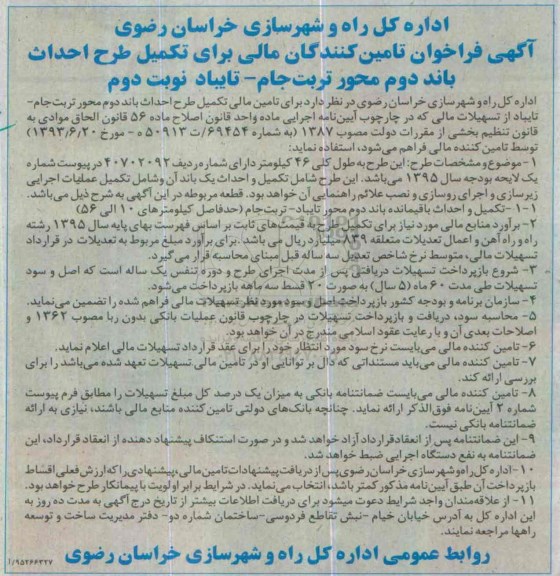 اداره کل راه و شهرسازی خراسان رضوی
آگهی فراخوان تامین‌کنندگان مالی برای تکمیل طرح احداث
باند دوم محور تربت‌جام- تایباد نوبت دوم
اداره کل راه و شهرسازی خراسان رضوی در نظر دارد برای تامین مالی تکمیل طرح احداث باند دوم محور تربت‌جام-
تایباد از تسهیلات مالی که در چارچوب آیین‌نامه اجرایی ماده واحد قانون اصلاح ماده ۵۶ قانون الحاق موادی به
قانون تنظیم بخشی از مقررات دولت مصوب ۱۳۸۷ (به شماره ۶۹۴۵۴/ت ۵۰۹۱۳ ه - مورخ ۱۳۹۳/۶/۲۰)
توسط تامین کننده مالی فراهم می‌شود، استفاده نماید:
۱-موضوع و مشخصات طرح: این طرح به طول کلی ۴۶ کیلومتر دارای شماره ردیف ۴۰۷۰۲۰۹۲ در پیوست شماره
یک لایحه بودجه سال ۱۳۹۵ می‌باشد. این طرح شامل تکمیل و احداث یک باند آن و شامل تکمیل عملیات اجرایی
زیرسازی و اجرای روسازی و نصب علائم راهنمایی آن خواهد بود. قطعه مربوطه در این آگهی به شرح ذیل می‌باشد.
۱-۱-تکمیل و احداث باقیمانده باند دوم محور تایباد- تربت‌جام (حدفاصل کیلومترهای ۱۰ الی ۵۶)
۲-برآورد منابع مالی مورد نیاز برای تکمیل طرح به قیمت‌های ثابت بر اساس فهرست بهای پایه سال ۱۳۹۵ رشته
راه و راه آهن و اعمال تعدیلات متعلقه ۸۳۹ میلیارد ریال می باشد. برای برآورد مبلغ مربوط به تعدیلات در قرارداد
تسهیلات مالی، متوسط نرخ شاخص تعدیل سه ساله قبل مبنای محاسبه قرار می‌گیرد.
۳- شروع بازپرداخت تسهیلات دریافتی پس از مدت اجرای طرح و دوره تنفس یک ساله است که اصل و سود
تسهیلات طی مدت ۶۰ ماه (۵ سال) به صورت ۲۰ قسط سه ماهه بازپرداخت می‌شود.
۴-سازمان برنامه و بودجه کشور بازپرداخت اصل و سود مورد نظر تسهیلات مالی فراهم شده را تضمین می‌نماید.
۵- محاسبه سود، دریافت و بازپرداخت تسهیلات در چارچوب قانون عملیات بانکی بدون ربا مصوب ۱۳۶۲ و
اصلاحات بعدی آن و با رعایت عقود اسلامی مندرج در آن خواهد بود.
۶-تامین کننده مالی می‌بایست نرخ سود مورد انتظار خود را برای عقد قرارداد تسهیلات مالی اعلام نماید.
۷-تامین کننده مالی می‌باید مستنداتی که دال بر توانایی او در تامین مالی تسهیلات تعهد شده می‌باشد را برای
بررسی ارائه کند.
۸- تامین کننده مالی می‌بایست ضمانتنامه بانکی به میزان یک درصد کل مبلغ تسهیلات را مطابق فرم پیوست
شماره ۲ آیین‌نامه فوق‌الذکر ارائه نماید. چنانچه بانک‌های دولتی تامین‌کننده منابع مالی باشند، نیازی به ارائه
ضمانتنامه بانکی نیست.
۹-این ضمانتنامه پس از انعقاد قرارداد آزاد خواهد شد و در صورت استنکاف پیشنهاد دهنده از انعقاد قرارداد، این
ضمانتنامه به نفع دستگاه اجرایی ضبط خواهد شد.
۱۰-اداره کل راه و شهرسازی خراسان رضوی پس از دریافت پیشنهادات تامین مالی، پیشنهادی را که ارزش فعلی اقساط
بازپرداخت آن طبق آیین‌نامه مذکور کمتر باشد، انتخاب می‌نماید. در شرایط برابر اولویت با پیمانکار طرح خواهد بود.
۱۱- از علاقه‌مندان واجد شرایط دعوت میشود برای دریافت اطلاعات بیشتر از تاریخ درج آگهی به مدت ده روز به
این اداره کل به آدرس خیابان خیام -نبش تقاطع فردوسی-ساختمان شماره دو- دفتر مدیریت ساخت و توسعه
راهها مراجعه نمایند.
روابط عمومی اداره کل راه و شهرسازی خراسان رضوی
۱/۹۵۲۶۶۳۲۷